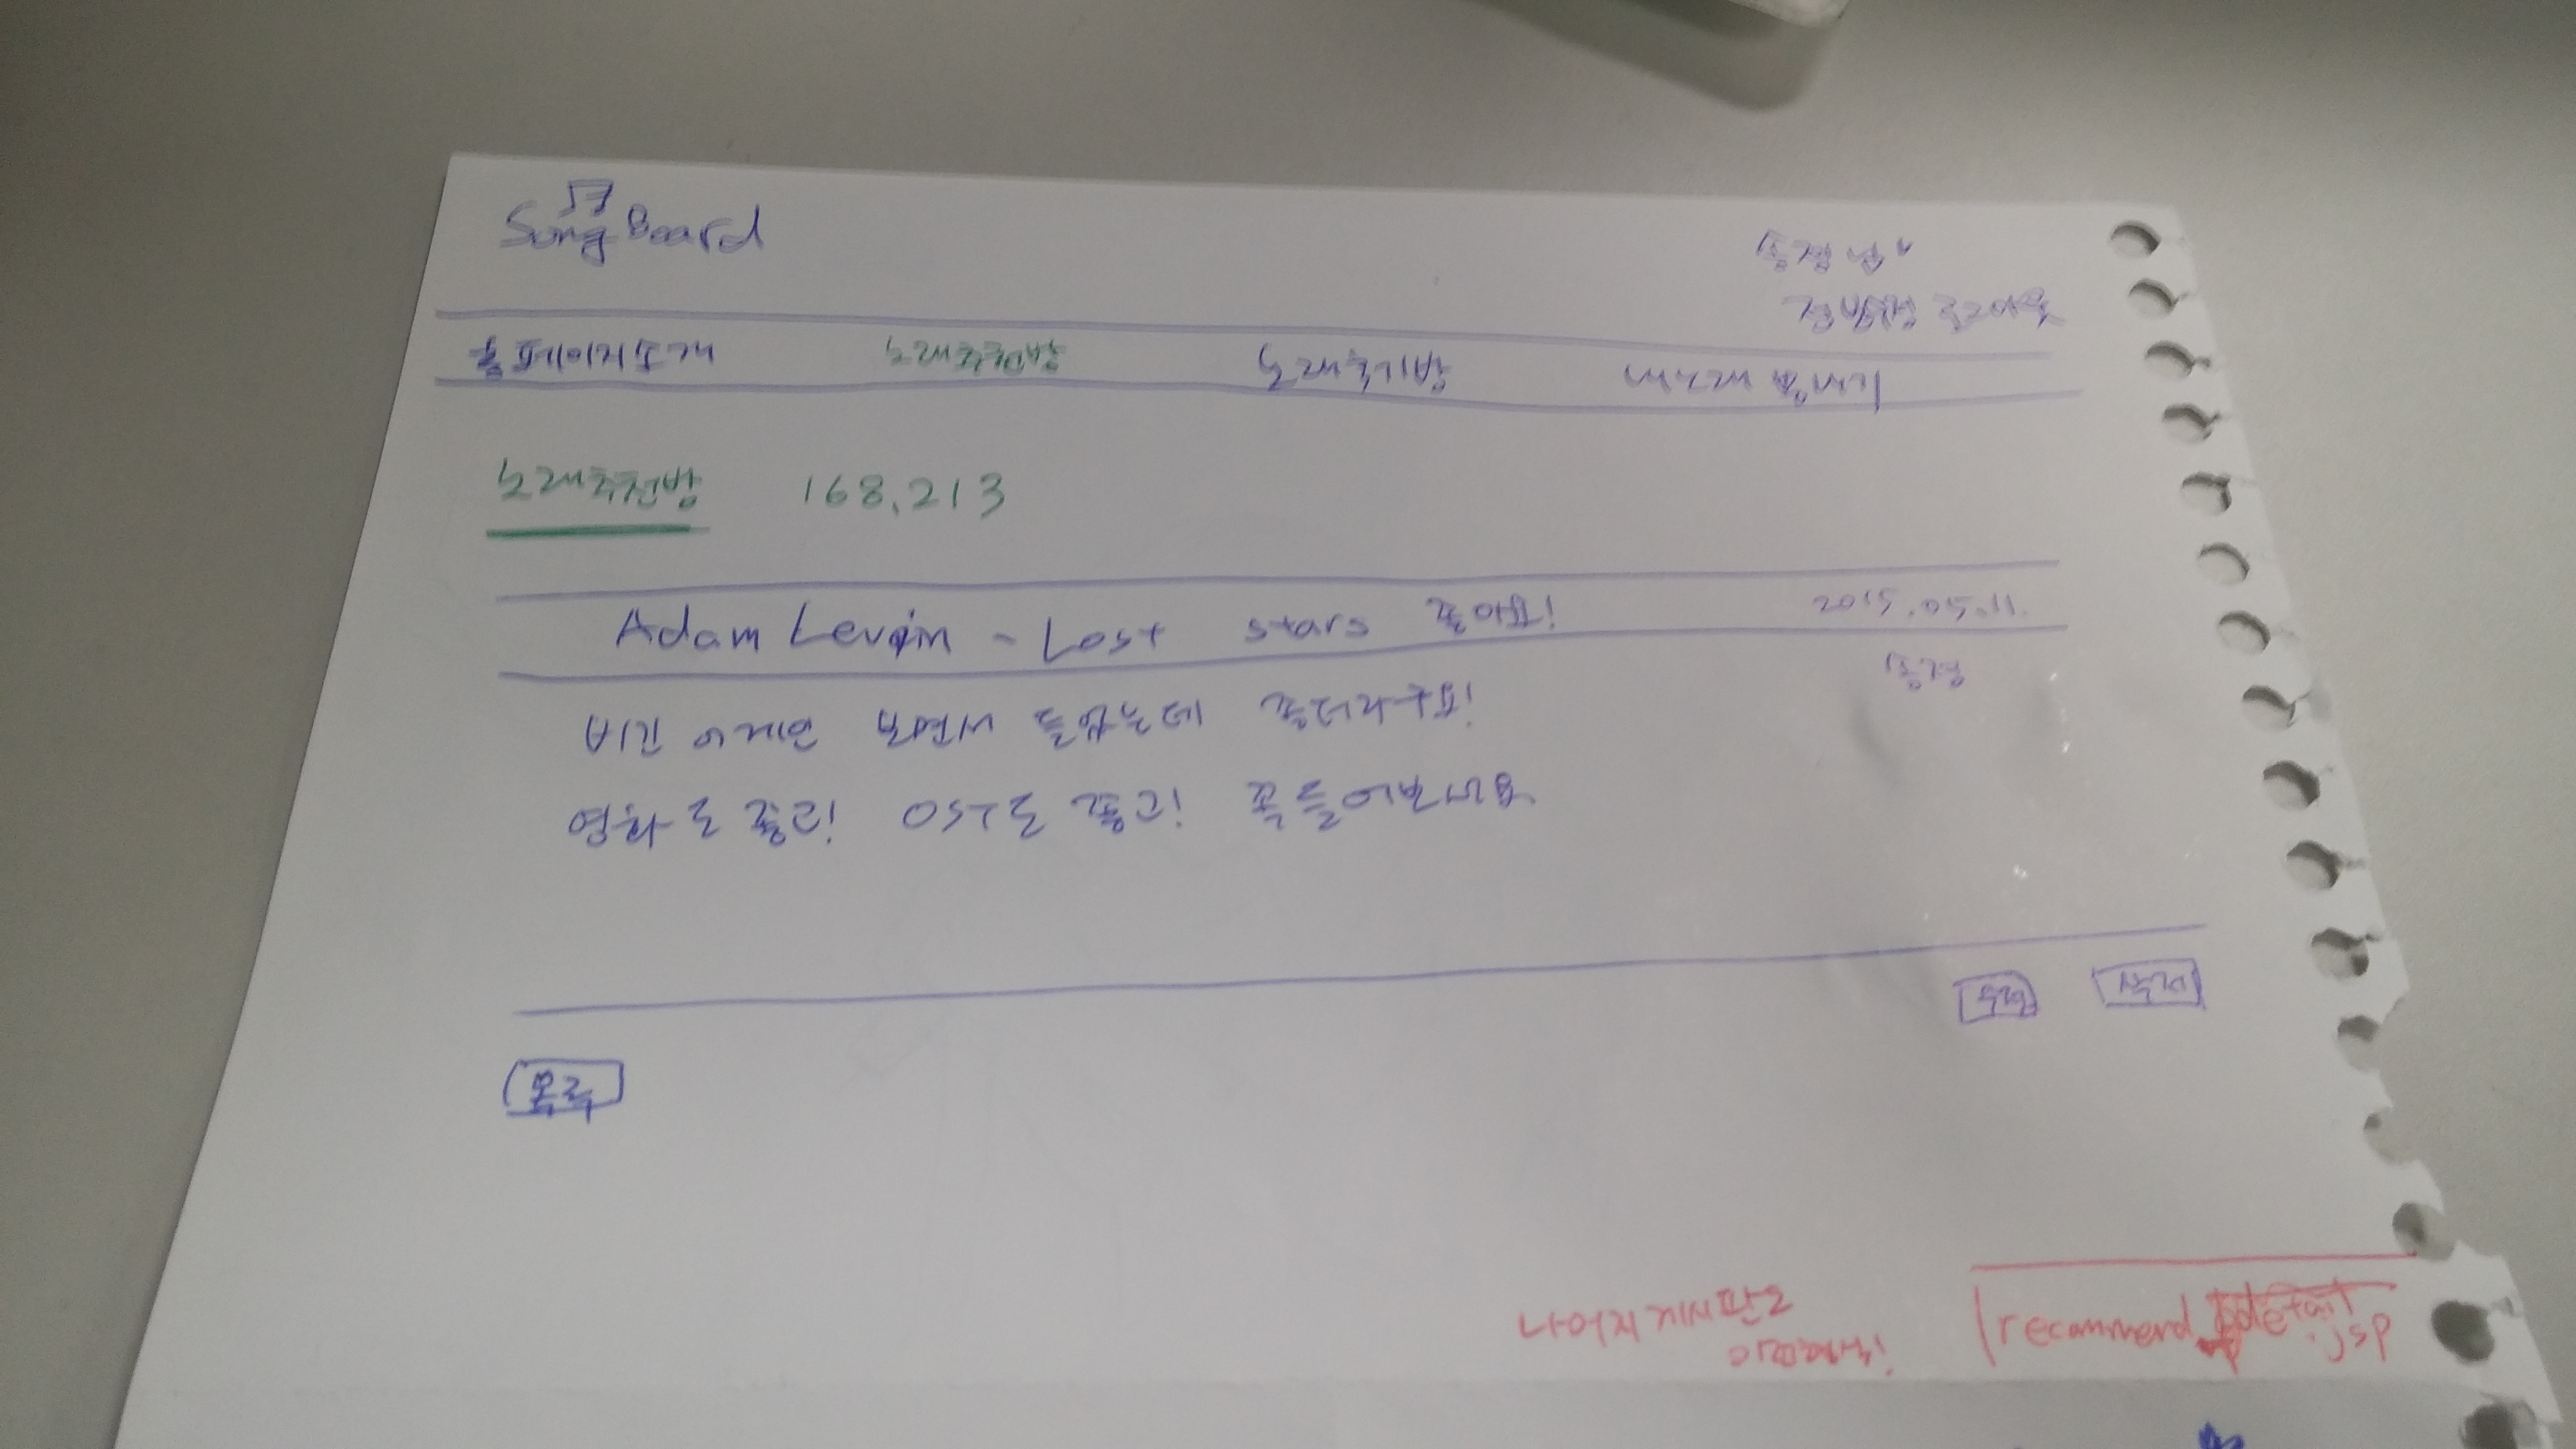 Song Board
홈페이지소개 노래추천방 노래듣기방
노래추천방 168,213
Adam Levin - Lost stars 좋아요! 2015.05.11.
비긴 어게인 보면서 들었는데 좋더라구요!
영화도 좋고! OST도 좋고! 꼭 들어보세요
수정 삭제
목록
나머지 게시판도
recommend detail.jsp